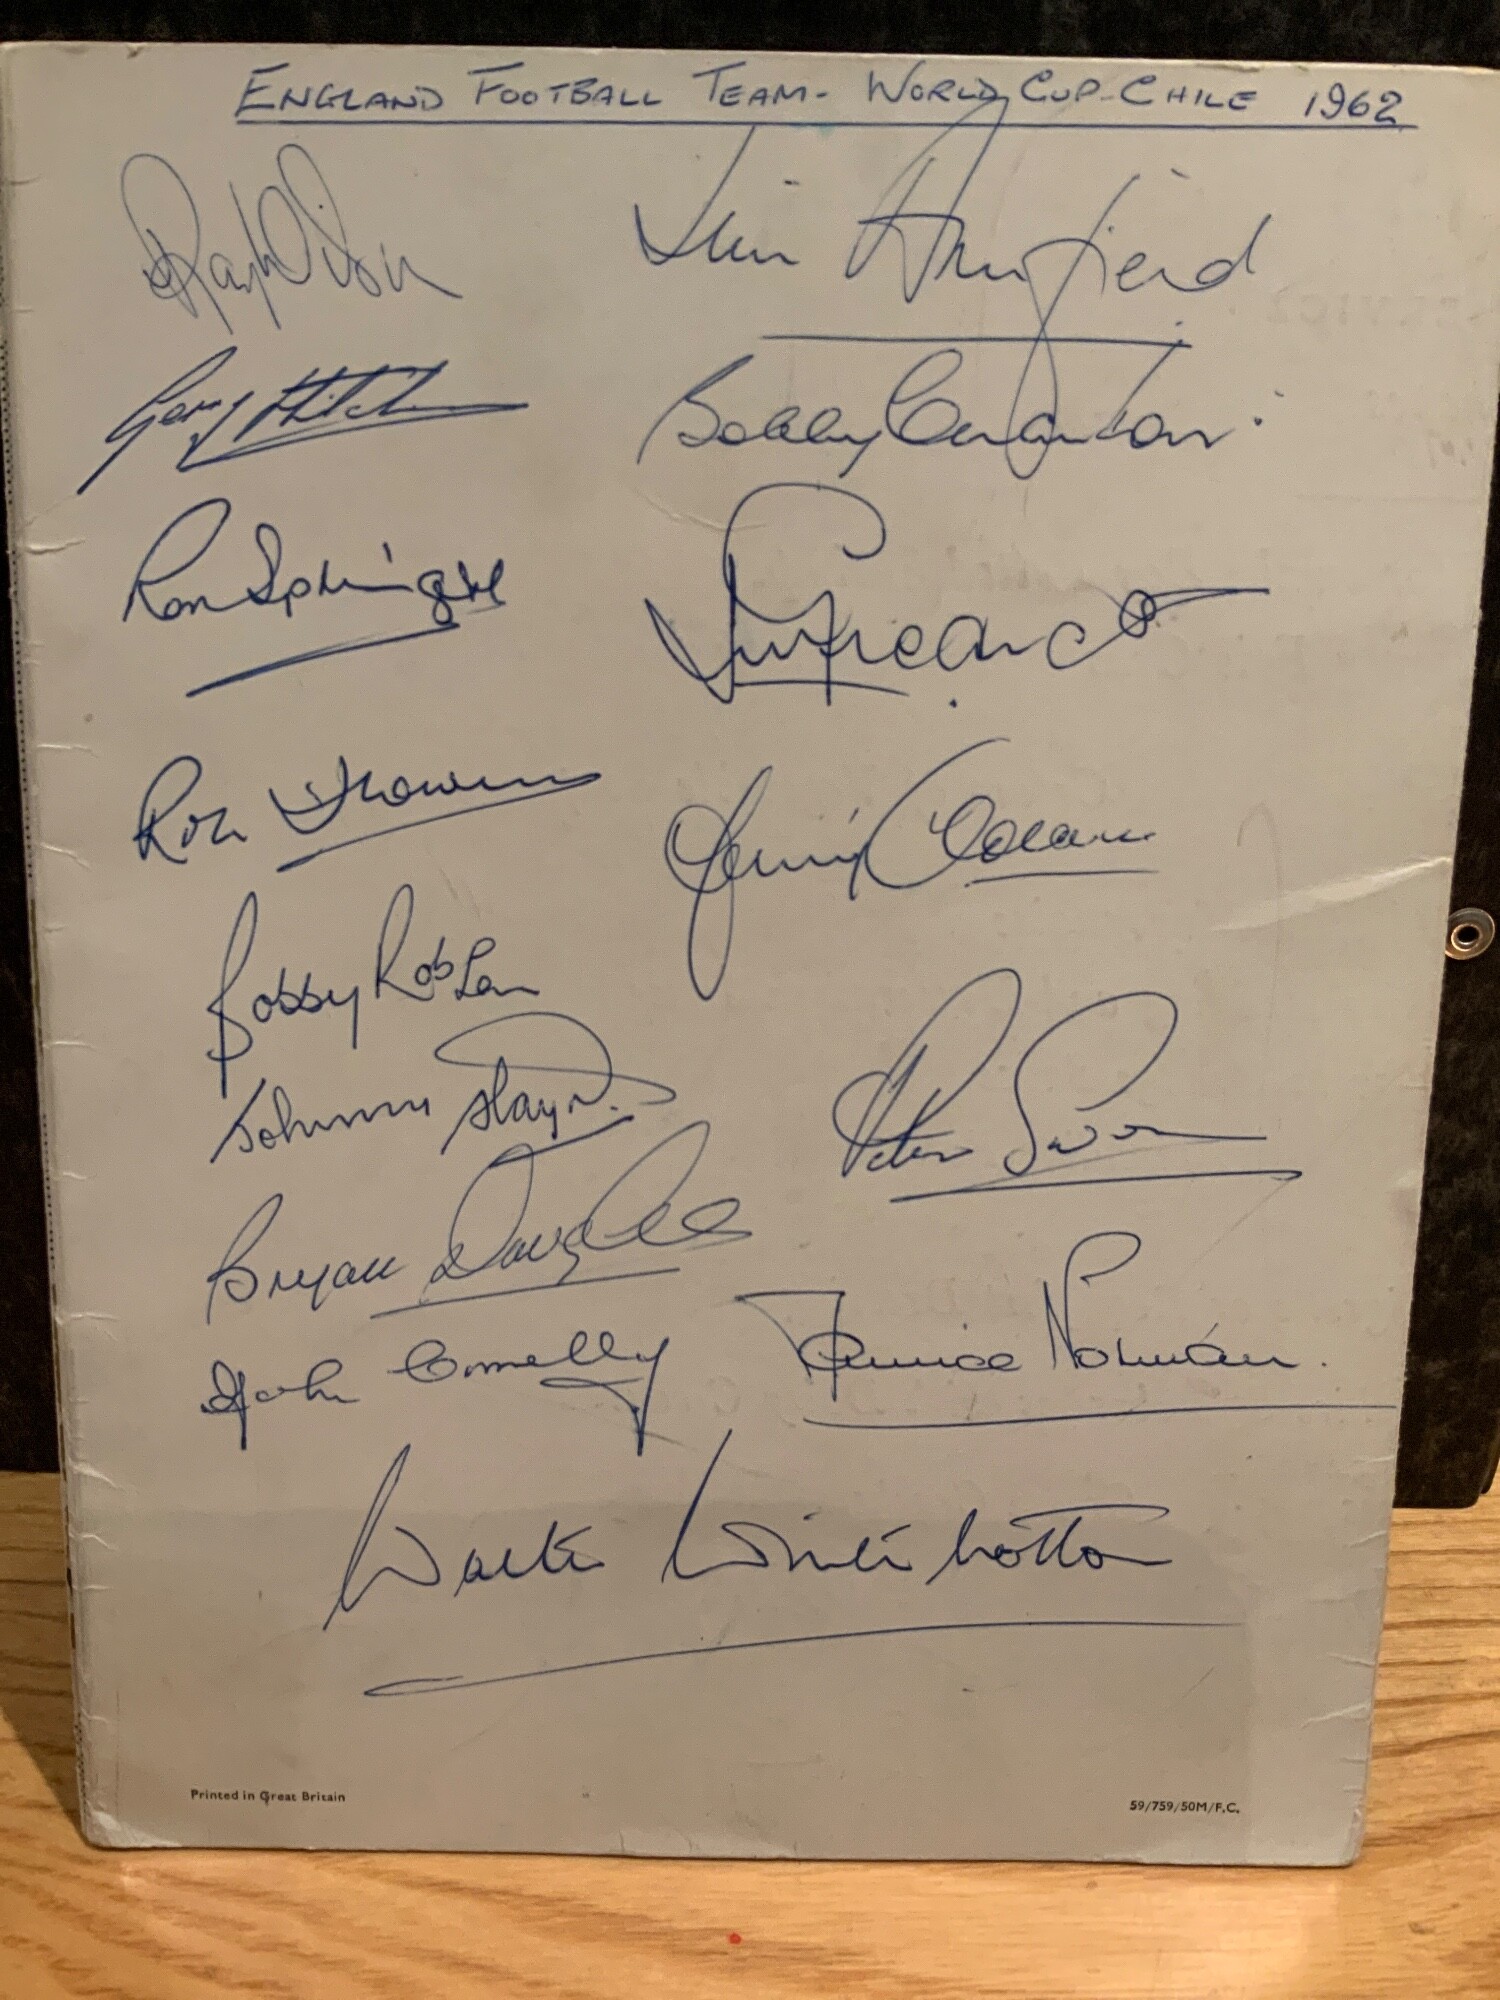 ENGLAND FOOTBALL TEAM - WORLD CUP - CHILE 1962
Ray Wilson
Jim Armfield
Gerry Hitchens
Bobby Charlton
Ron Springett
Ron Flowers
Bobby Robson
Johnny Haynes
Peter Swan
Bryan Douglas
John Connelly
Maurice Norman.
Walter Winterbottom
Printed in Great Britain
59/759/50M/F.C.